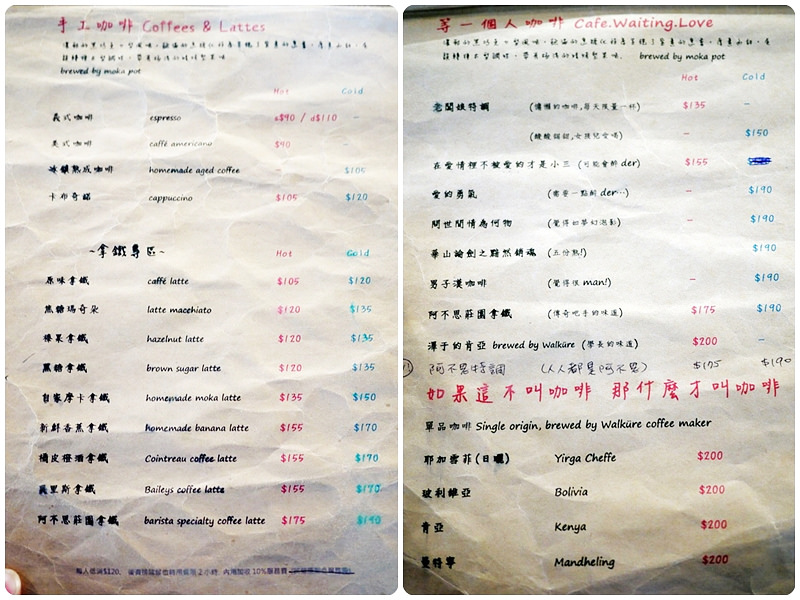 手工咖啡 Coffees & Lattes
brewed by moka pot
Hot Cold
義式咖啡 espresso s$90 / d$110 –
美式咖啡 caffé americano $90 –
冰鎮熟成咖啡 homemade aged coffee – $105
卡布奇諾 cappuccino $105 $120
~拿鐵專區~ Hot Cold
原味拿鐵 caffé latte $105 $120
焦糖瑪奇朵 latte macchiato $120 $135
榛果拿鐵 hazelnut latte $120 $135
黑糖拿鐵 brown sugar latte $120 $135
自家摩卡拿鐵 homemade moka latte $135 $150
新鮮香蕉拿鐵 homemade banana latte $155 $170
橘皮橙酒拿鐵 Cointreau coffee latte $155 $170
貝里斯拿鐵 Baileys coffee latte $155 $170
阿不思莊園拿鐵 barista specialty coffee latte $175 $190
每人低消$120, 內用加收10%服務費
等一個人咖啡 Cafe.Waiting.Love
brewed by moka pot
Hot Cold
老闆娘特調 (慵懶的咖啡,每天限量一杯) $135 –
(酸酸甜甜,女孩兒愛喝) – $150
在愛情裡不被愛的才是小三 (可能會醉 der) $155
愛的勇氣 (需要一點醉 der…) – $190
問世間情為何物 (覺得如夢幻泡影) – $190
華山論劍之黯然銷魂 (五份熟!) $190
男子漢咖啡 (覺得很 man!) – $190
阿不思莊園拿鐵 (傳奇吧手的味道) $175 $190
澤于的肯亞 brewed by Walküre (學長的味道) $200 –
阿不思特調 (人人都是阿不思) $175 $190
如果這不叫咖啡 那什麼才叫咖啡
單品咖啡 Single origin, brewed by Walküre coffee maker
耶加雪菲(日曬) Yirga Cheffe $200
玻利維亞 Bolivia $200
肯亞 Kenya $200
曼特寧 Mandheling $200